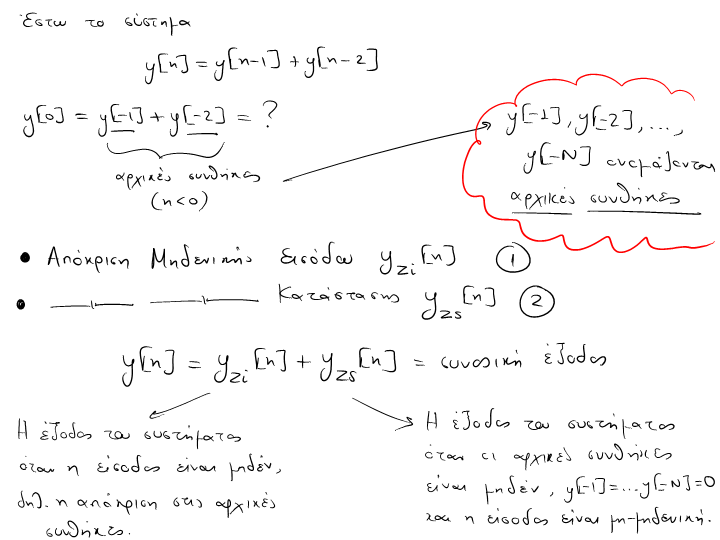 Έστω το σύστημα
y[n] = y[n-1] + y[n-2]
y[0] = y[-1] + y[-2] = ?
αρχικές συνθήκες
(n<0)
y[-1], y[-2], ...,
y[-N] ονομάζονται
αρχικές συνθήκες
• Απόκριση Μηδενικής Εισόδου y_zi[n] ①
• —〃— —〃— Κατάστασης y_zs[n] ②
y[n] = y_zi[n] + y_zs[n] = συνολική έξοδος
Η έξοδος του συστήματος
όταν η είσοδος είναι μηδέν,
δηλ. η απόκριση στις αρχικές
συνθήκες.
Η έξοδος του συστήματος
όταν οι αρχικές συνθήκες
είναι μηδέν, y[-1]=...y[-N]=0
και η είσοδος είναι μη-μηδενική.